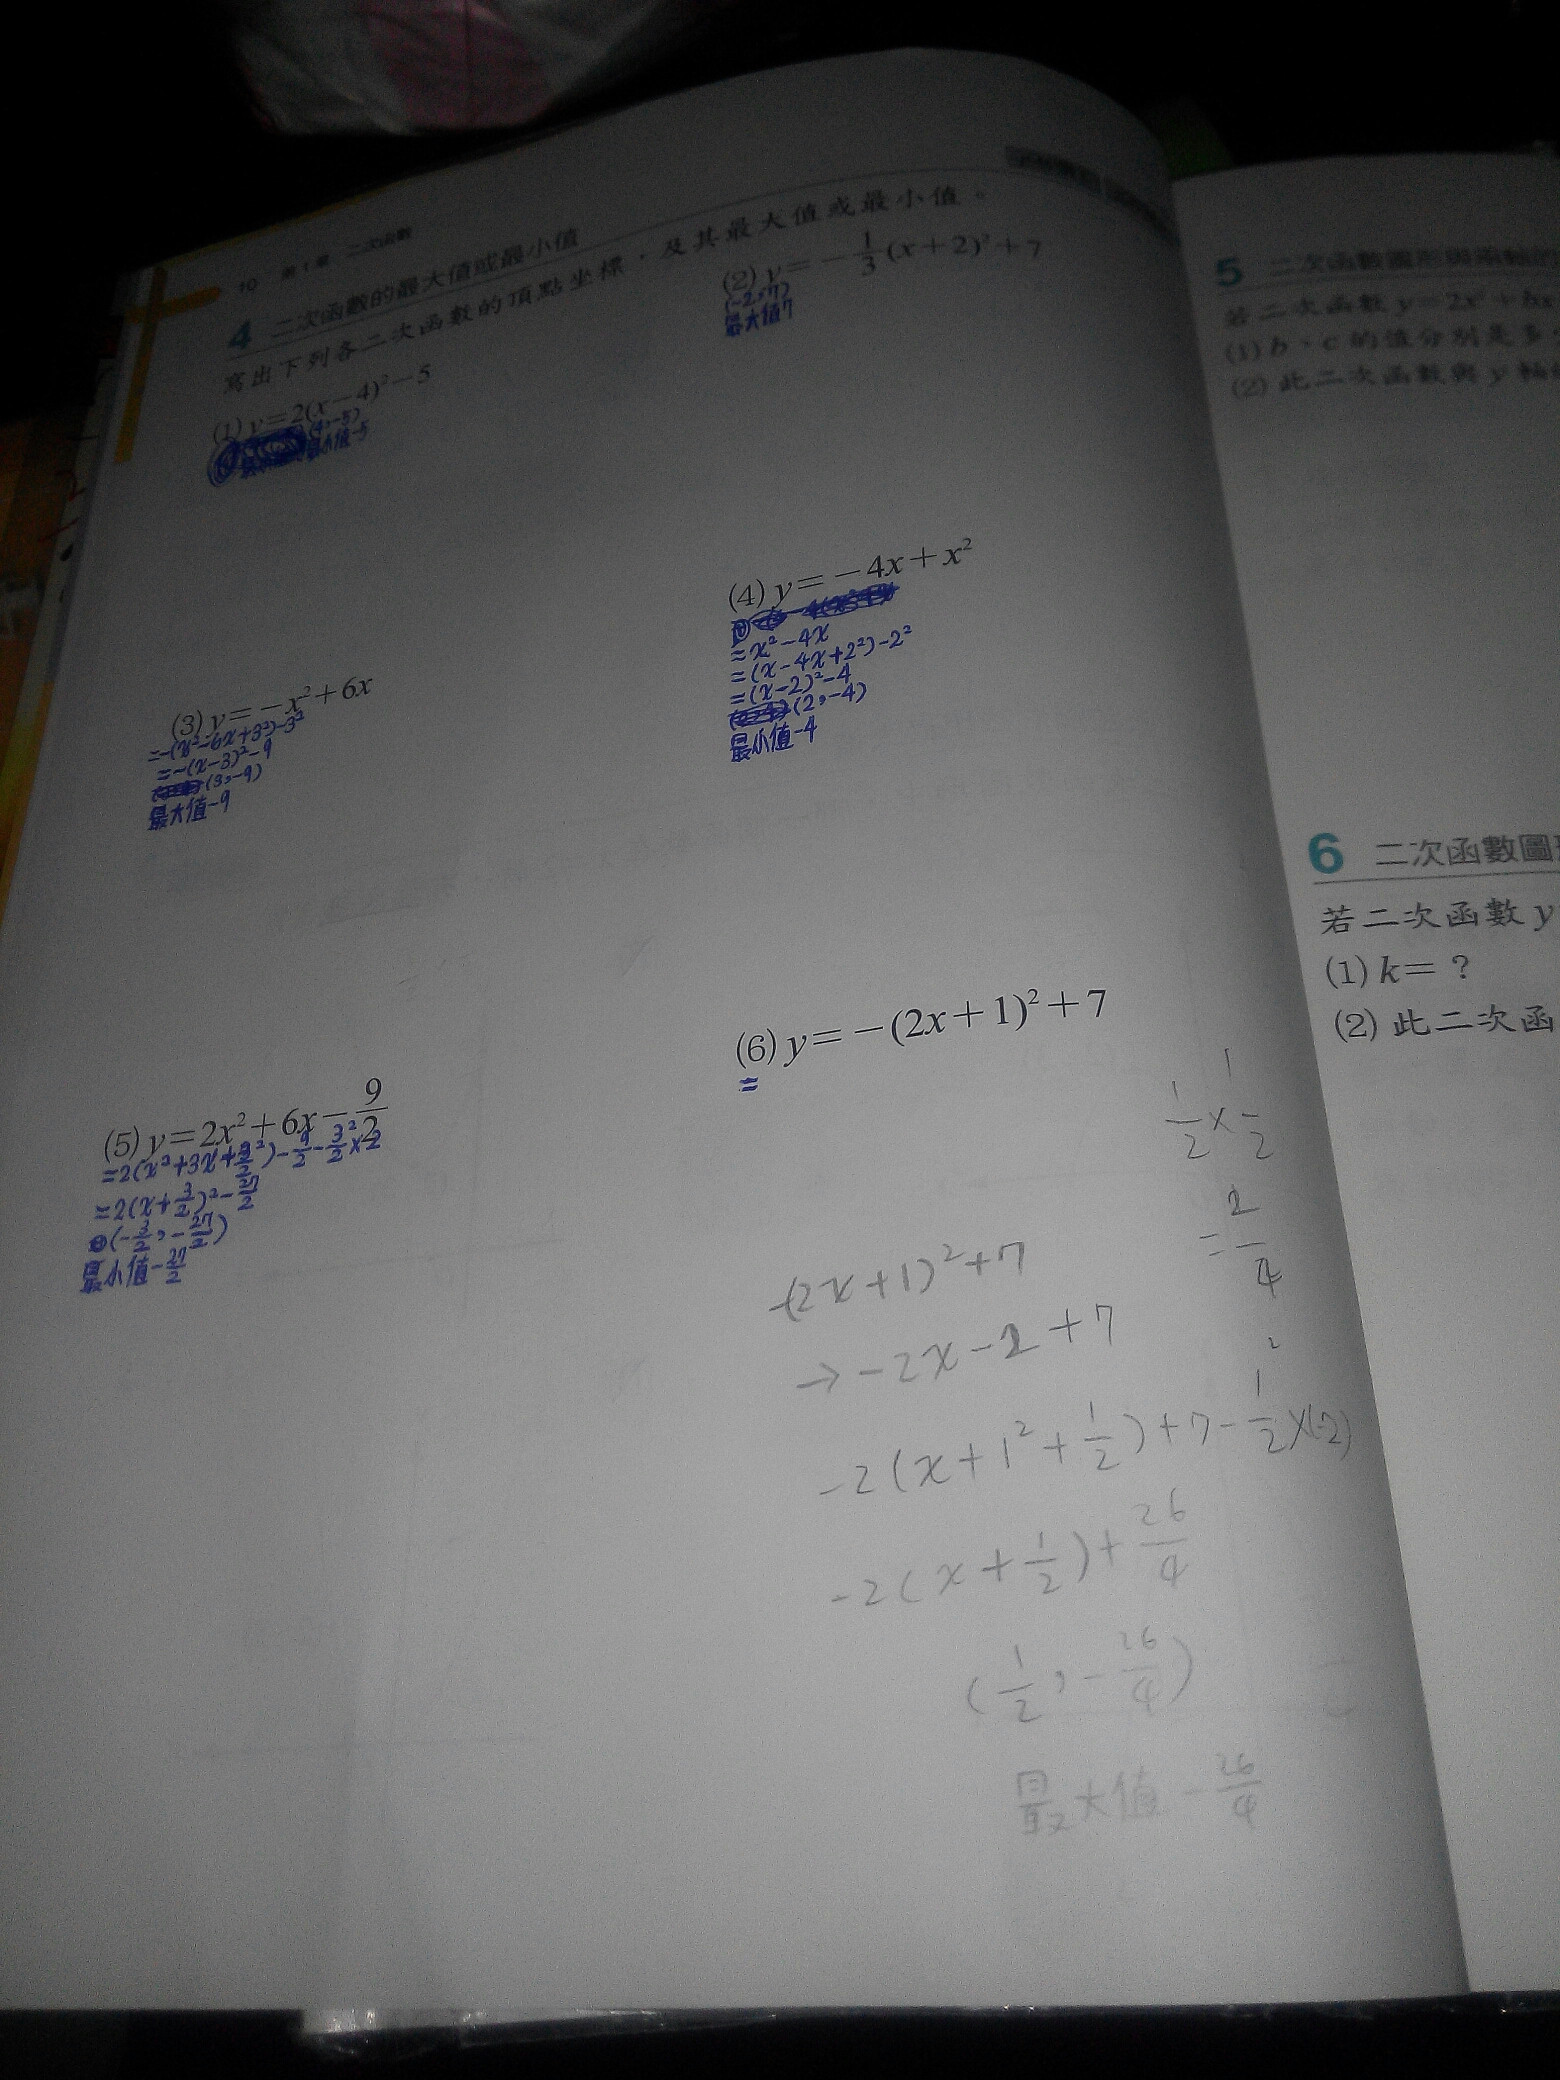 10 第1章 二次函數
4 二次函數的最大值或最小值
寫出下列各二次函數的頂點坐標,及其最大值或最小值。
(1) y=2(x-4)²-5
(4,-5)
最小值-5
(2) y=-1/3(x+2)²+7
(-2,7)
最大值7
(3) y=-x²+6x
=-(x²-6x+3²)-3²
=-(x-3)²-9
(3,-9)
最大值-9
(4) y=-4x+x²
=x²-4x
=(x-4x+2²)-2²
=(x-2)²-4
(2,-4)
最小值-4
(5) y=2x²+6x-9/2
=2(x²+3x+3/2²)-9/2-3/2²×2
=2(x+3/2)²-27/2
(-3/2,-27/2)
最小值-27/2
(6) y=-(2x+1)²+7
=
1/2×1/2
-(2x+1)²+7
→-2x-2+7
-2(x+1²+1/2)+7-1/2²×(-2)
-2(x+1/2)+26/4
(1/2,-26/4)
最大值-26/4
5 二次函數圖形與兩軸的
若二次函數 y=2x²+bx
(1) b、c的值分別是多
(2) 此二次函數與y軸
6 二次函數圖
若二次函數 y
(1) k=?
(2) 此二次函